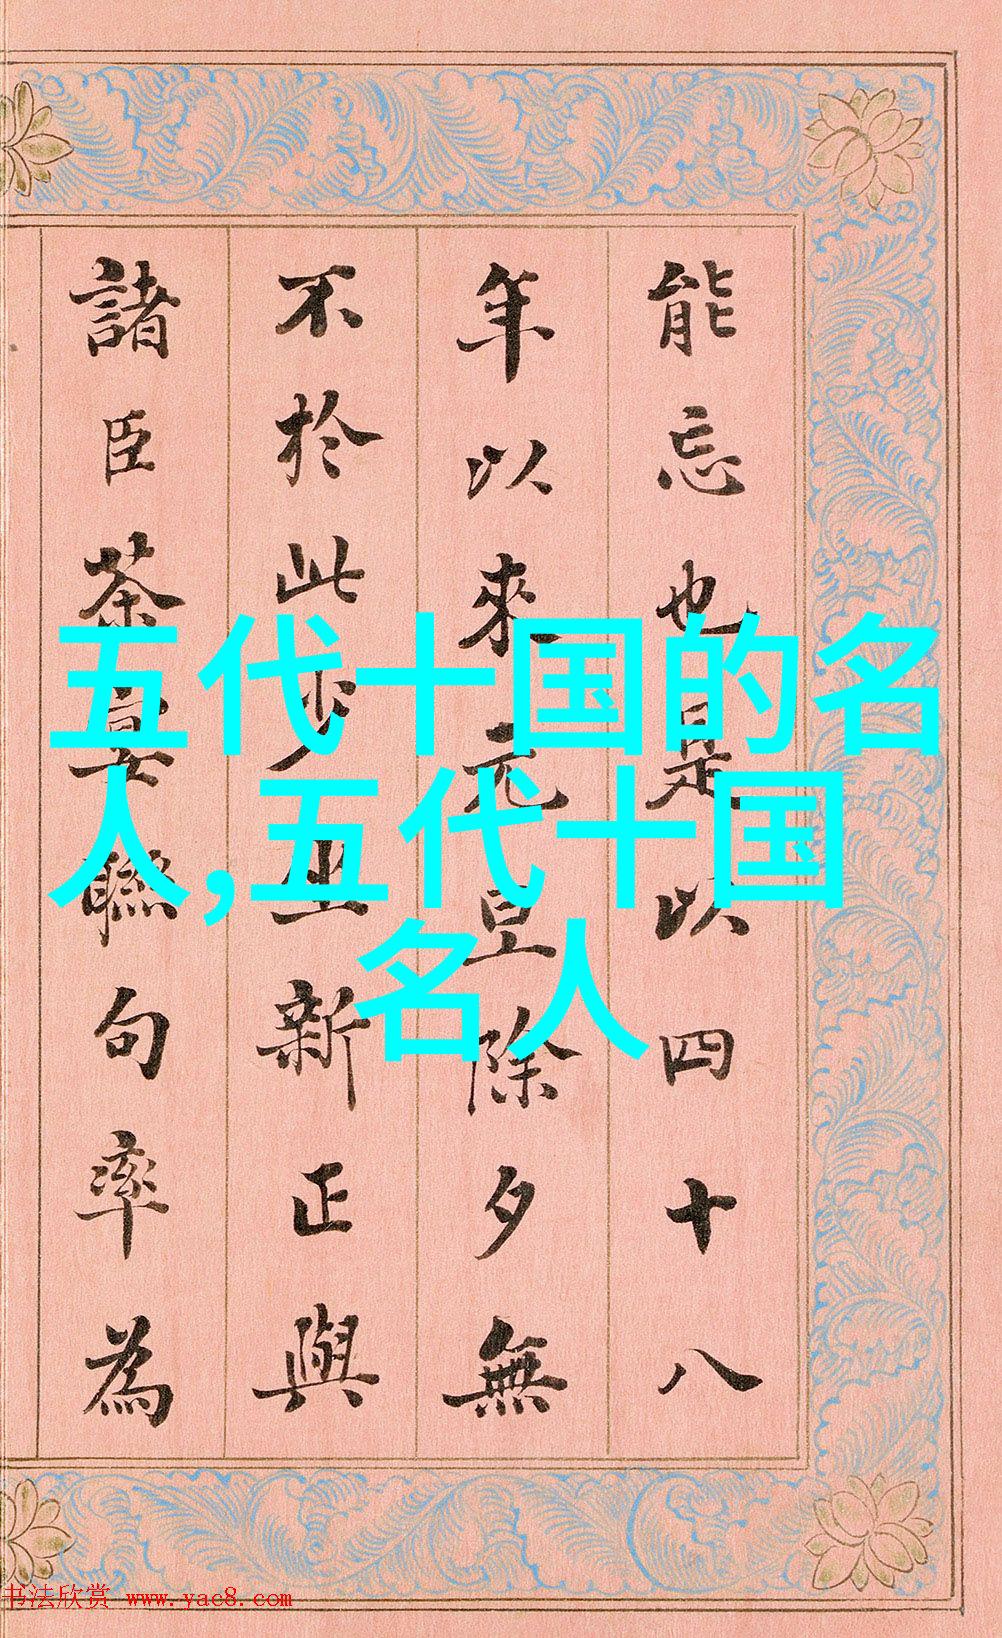 能忘也是以四十八
年以來元旦除夕無
不於此少坐新正與
諸臣茶宴聯句率為
五代十国的名
人,五代十国
名人
书法欣赏 www.yac8.com